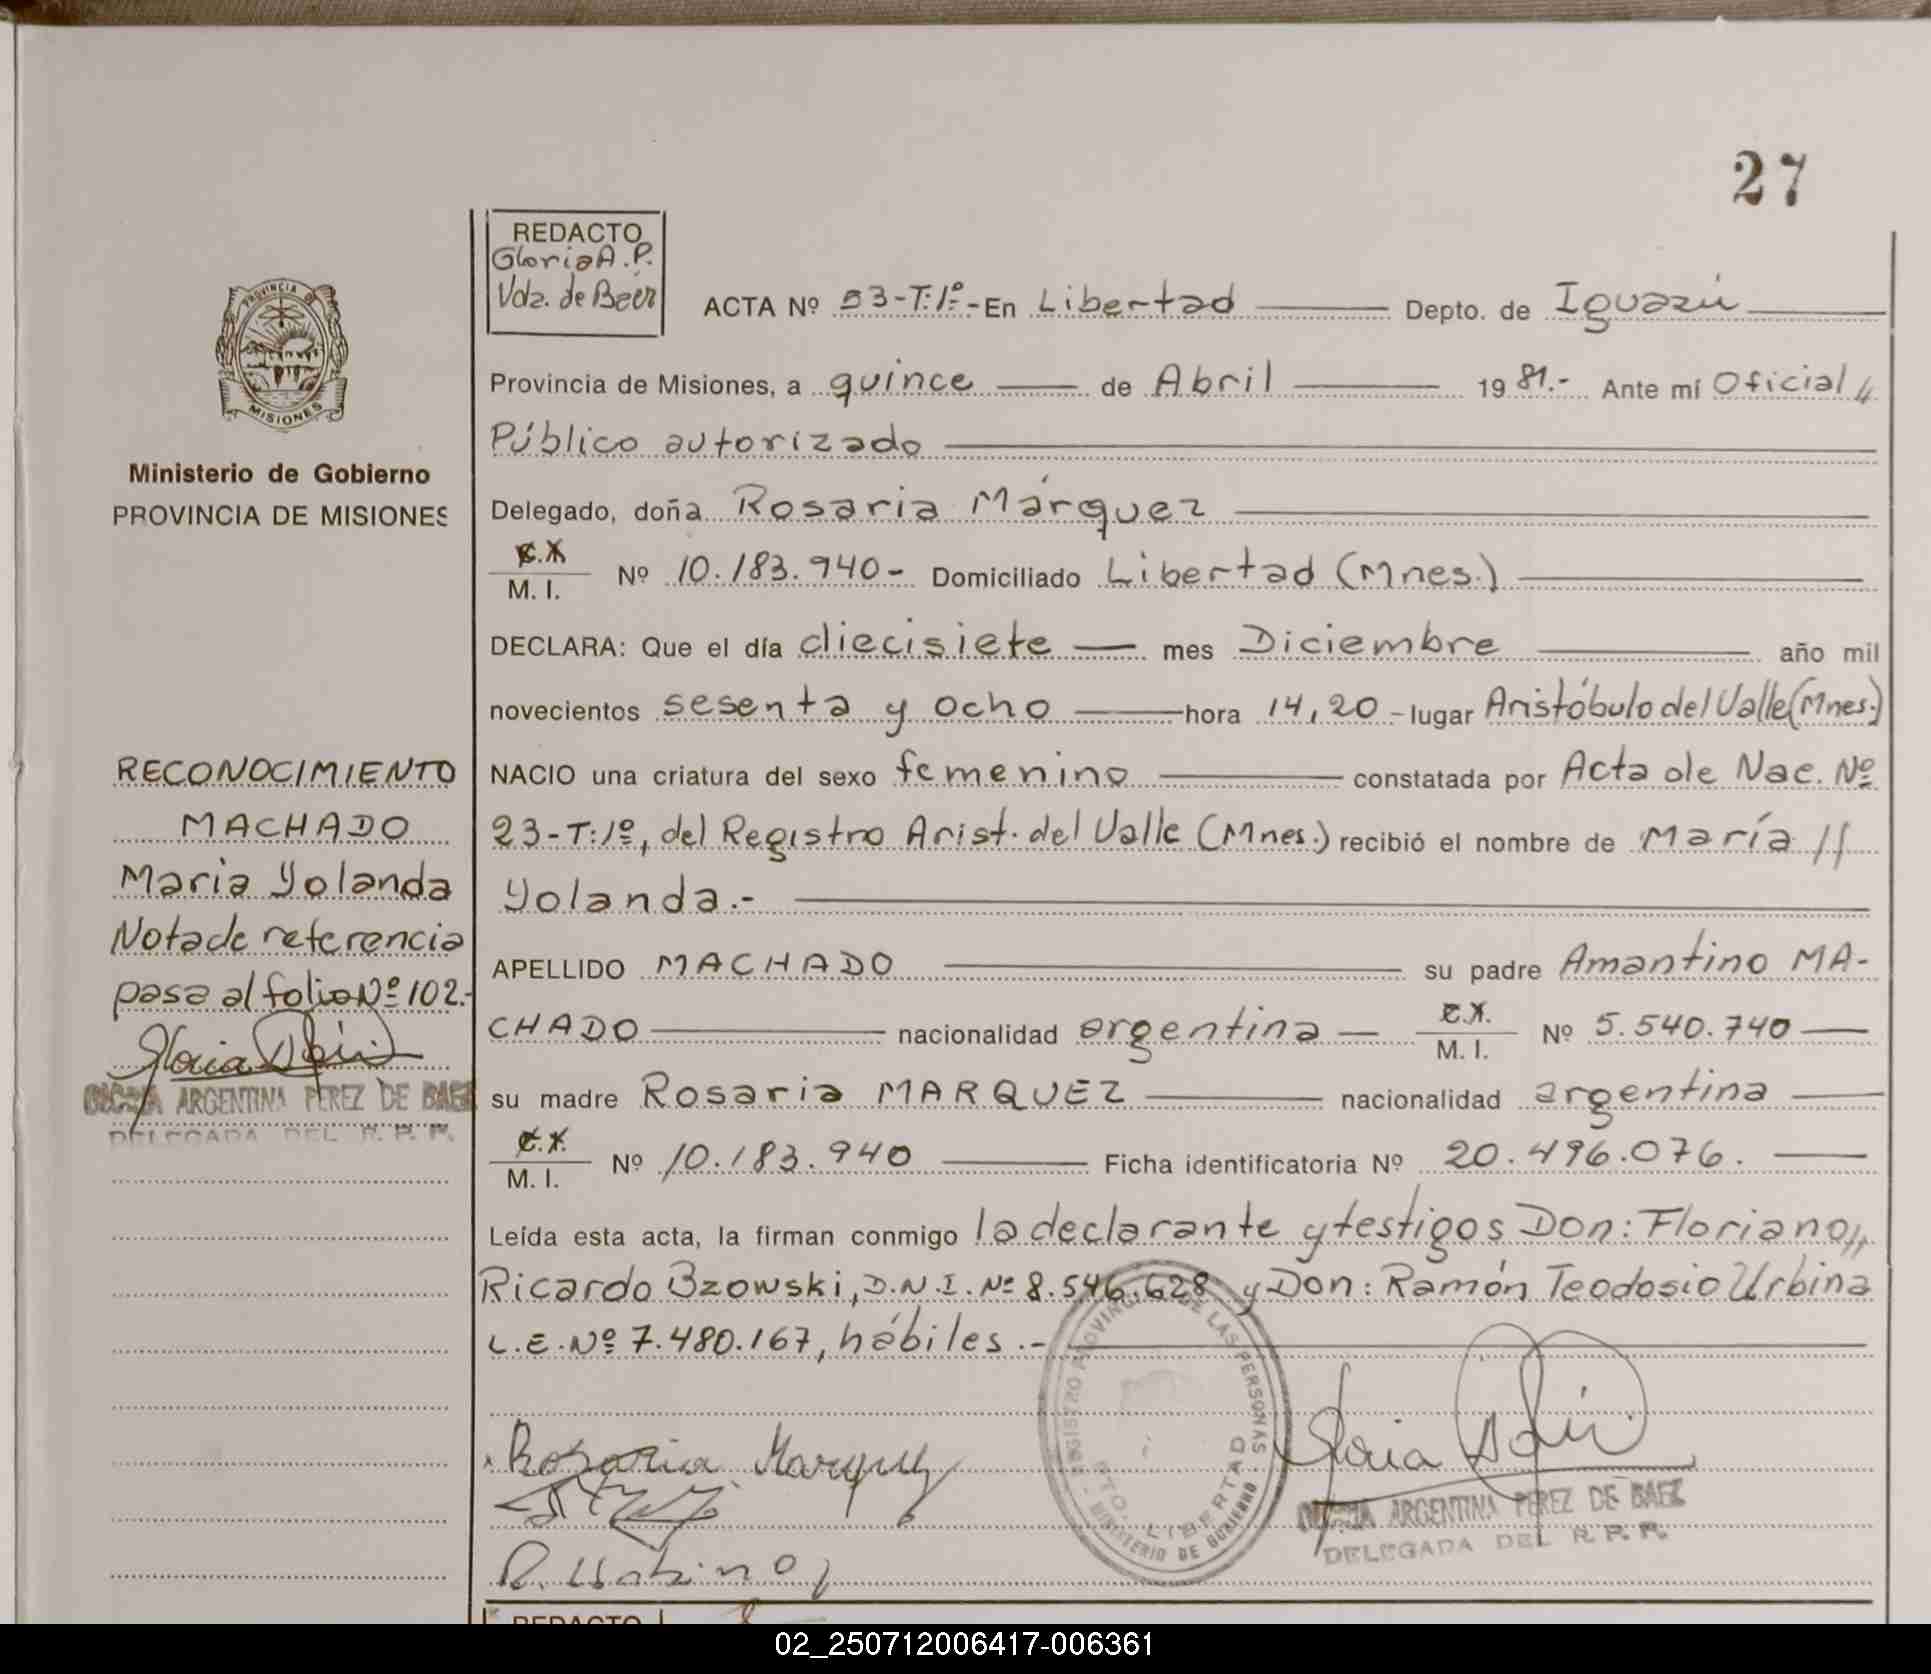 27
REDACTO
Gloria A. P.
Vda. de Baéz
ACTA Nº 53-T:1º.- En Libertad Depto. de Iguazú
Provincia de Misiones, a quince de Abril 1981.- Ante mí Oficial //
Público autorizado
PROVINCIA DE
MISIONES
Ministerio de Gobierno
PROVINCIA DE MISIONES
Delegado, doña Rosaria Márquez
C.I.
M. I. Nº 10.183.940- Domiciliado Libertad (Mnes.)
DECLARA: Que el día diecisiete mes Diciembre año mil
novecientos sesenta y ocho hora 14,20 - lugar Aristóbulo del Valle (Mnes.)
NACIO una criatura del sexo femenino constatada por Acta de Nac. Nº
23-T:1º, del Registro Arist. del Valle (Mnes.) recibió el nombre de María //
Yolanda.-
APELLIDO MACHADO su padre Amantino MA-
CHADO nacionalidad argentina C.I.
M. I. Nº 5.540.740
su madre Rosaria MARQUEZ nacionalidad argentina
C.I.
M. I. Nº 10.183.940 Ficha identificatoria Nº 20.496.076.
Leída esta acta, la firman conmigo la declarante y testigos Don: Floriano //
Ricardo Bzowski, D.N.I. Nº 8.546.628 y Don: Ramón Teodosio Urbina
L.E. Nº 7.480.167, hábiles.-
RECONOCIMIENTO
MACHADO
Maria Yolanda
Nota de referencia
pasa al folio Nº 102.-
Gloria
ARGENTINA PEREZ DE BAEZ
DELEGADA DEL R. P. P.
Rosaria Marquez
R. Urbina
REGISTRO PROVINCIAL DE LAS PERSONAS - MINISTERIO DE GOBIERNO
PTO. LIBERTAD
Gloria
ARGENTINA PEREZ DE BAEZ
DELEGADA DEL R. P. P.
REDACTO
02_250712006417-006361